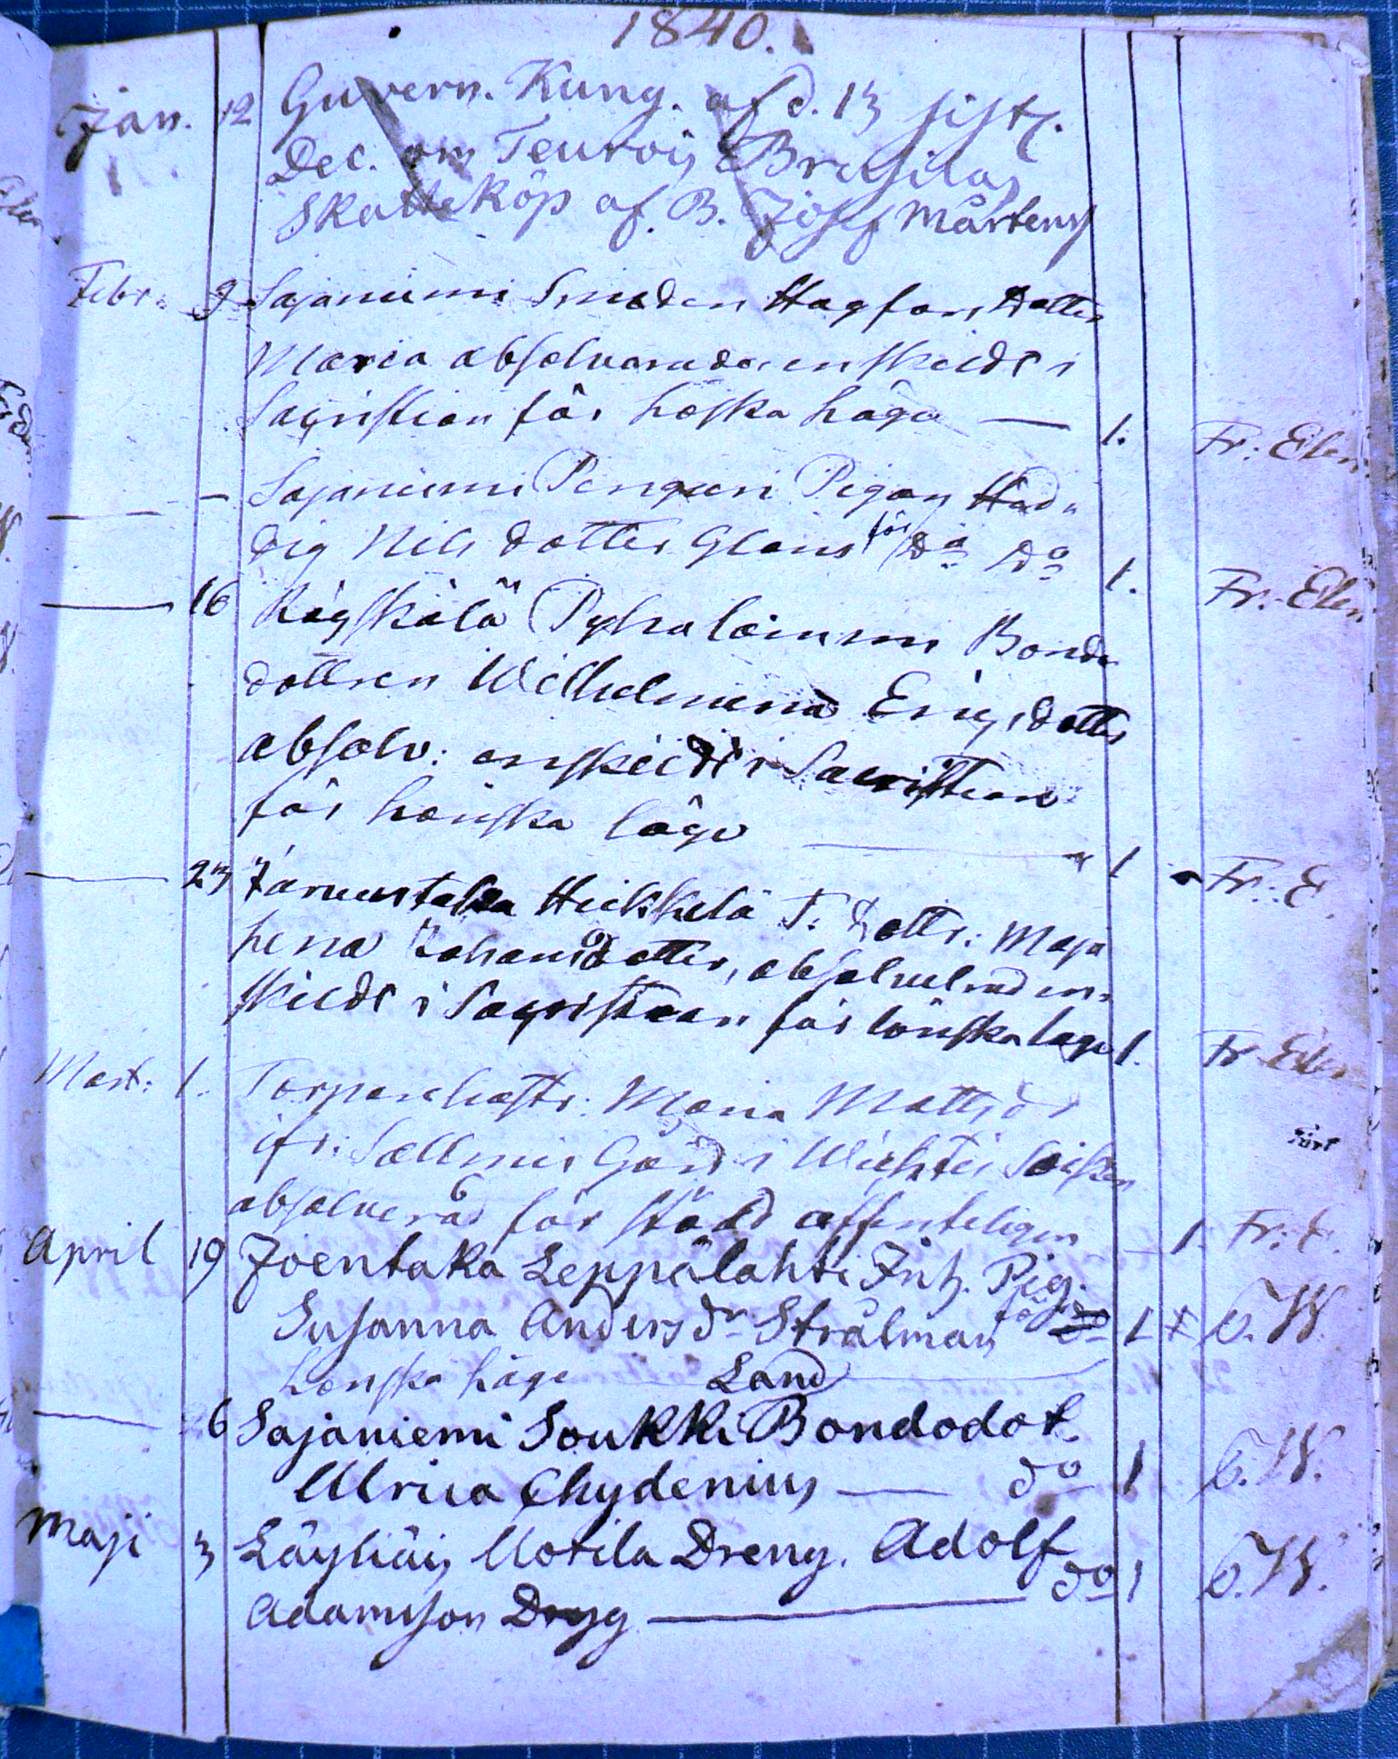 1840.
Jan. 12 Guvern. Kung. af d. 13 sistl.
Dec. om Teurois
Skatteköp af B. Josef Mårtens
Febr. 9 Sajaniemi Smeden Hagfors Dotter
Maria absolverades enskildt i
Sacristian för löska läge — 1. Fr: Elen
— – Sajaniemi Pigan Hed-
vig Nils dotter Glans för Do Do 1. Fr: Elen
— 16 Räyskälä Pyhälammi Bonde
dottren Wilhelmina Ericsdotter
absolv: enskildt i Sacristian
för lönska läge — 1 Fr: E.
— 23 Heikkilä T. Dottr: Maja
Lena Johansdotter, absolverad en-
skildt i Sacristian för lönska läge 1. Fr Elen
Mart: 1. Maria Mattsdr
ifr: Gård i Wichtis Socken
absolverad för stöld offenteligen 1. Fr: E.
April 19 Joentaka Leppälahti Inh. Pig.
Susanna Andersdr Strålman för do 1 C. W.
lönska läge Land
— 6 Sajaniemi Soukki Bondedot.
Ulrica Chydenius — do 1 C. W.
Maji 3 Läyliäis Uotila Dreng. Adolf
Adamsson Dryg — do 1 C. W.